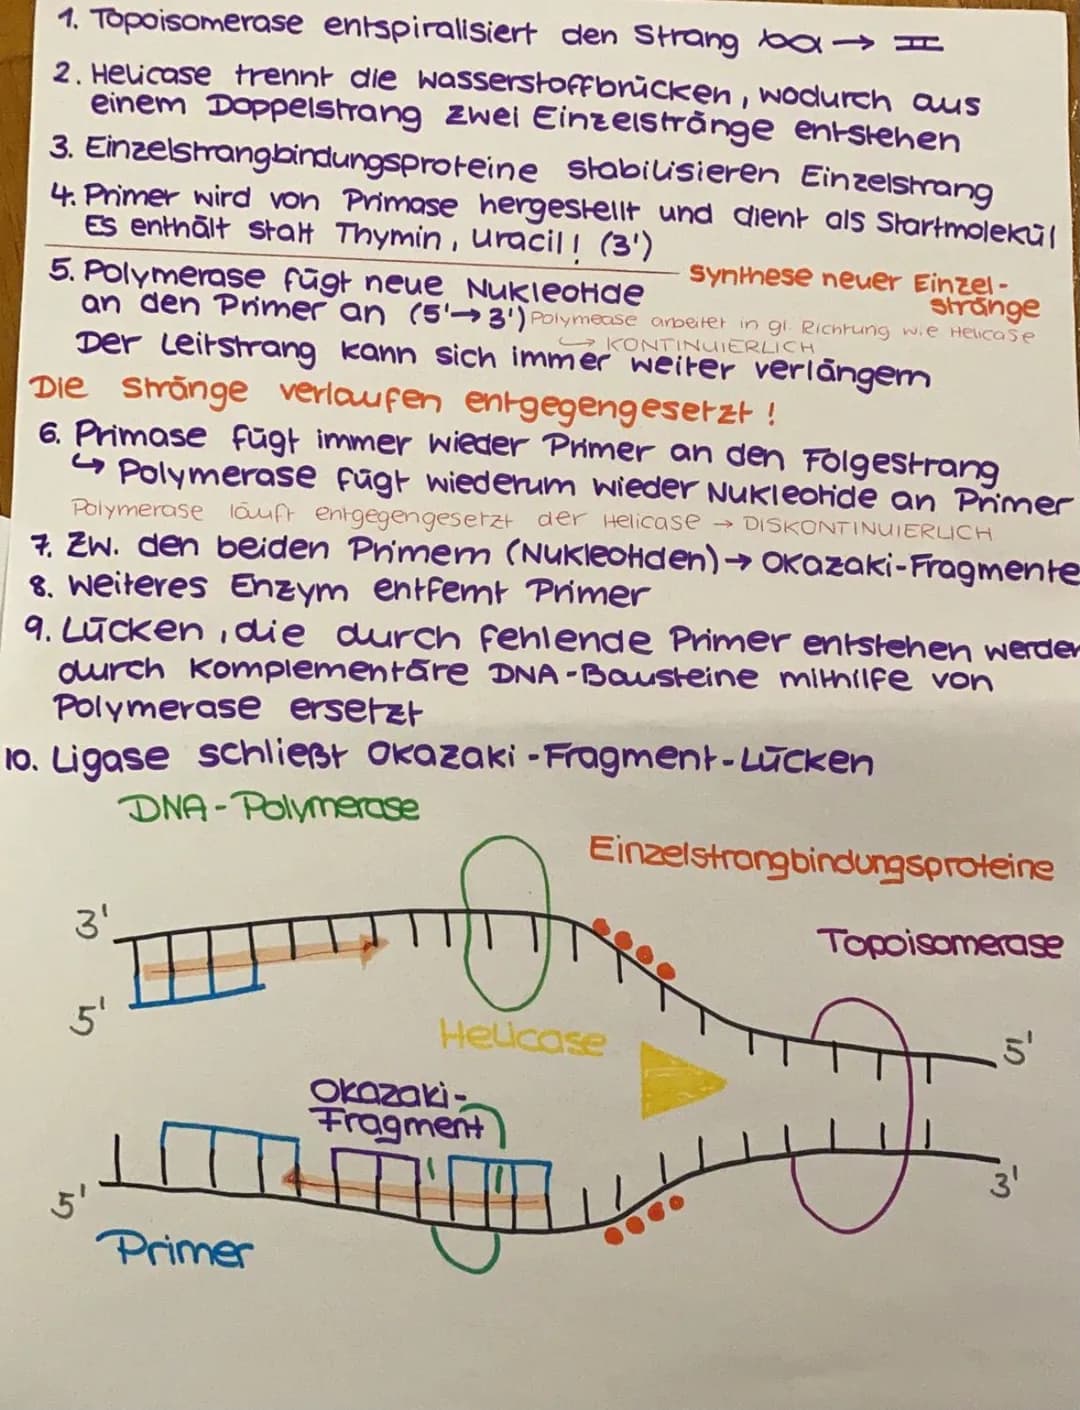 1. Topoisomerase entspiralisiert den Strang →
2. Helicase trennt die Wasserstoffbrücken, wodurch aus
einem Doppelstrang zwei Einzelstränge entstehen
3. Einzelstrangbindungsproteine stabilisieren Einzelstrang
4. Primer wird von Primase hergestellt und dient als Startmolekül
Es enthält statt Thymin, Uracil! (3')
Synthese neuer Einzel-
stränge
5. Polymerase fügt neue Nukleotide
an den Primer an (5'→3') Polymease arbeitet in gl. Richtung wie Helicase
↳ KONTINUIERLICH
Der Leitstrang kann sich immer weiter verlängern
Die Stränge verlaufen entgegengesetzt!
6. Primase fügt immer wieder Primer an den Folgestrang
↳ Polymerase fügt wiederum wieder Nukleotide an Primer
Polymerase läuft entgegengesetzt der Helicase → DISKONTINUIERLICH
7. Zw. den beiden Primern (Nukleotiden) → Okazaki-Fragmente
8. Weiteres Enzym entfernt Primer
9. Lücken, die durch fehlende Primer entstehen werden
durch komplementäre DNA-Bausteine mithilfe von
Polymerase ersetzt
10. Ligase schließt Okazaki-Fragment-Lücken
DNA-Polymerase
Einzelstrangbindungsproteine
3'
Topoisomerase
5'
Helicase
5'
Okazaki-
Fragment
3'
5'
Primer